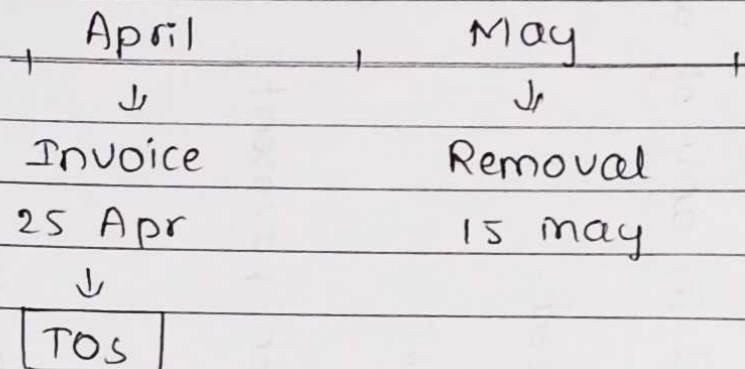 April May
↓ ↓
Invoice Removal
25 Apr 15 may
↓
TOS